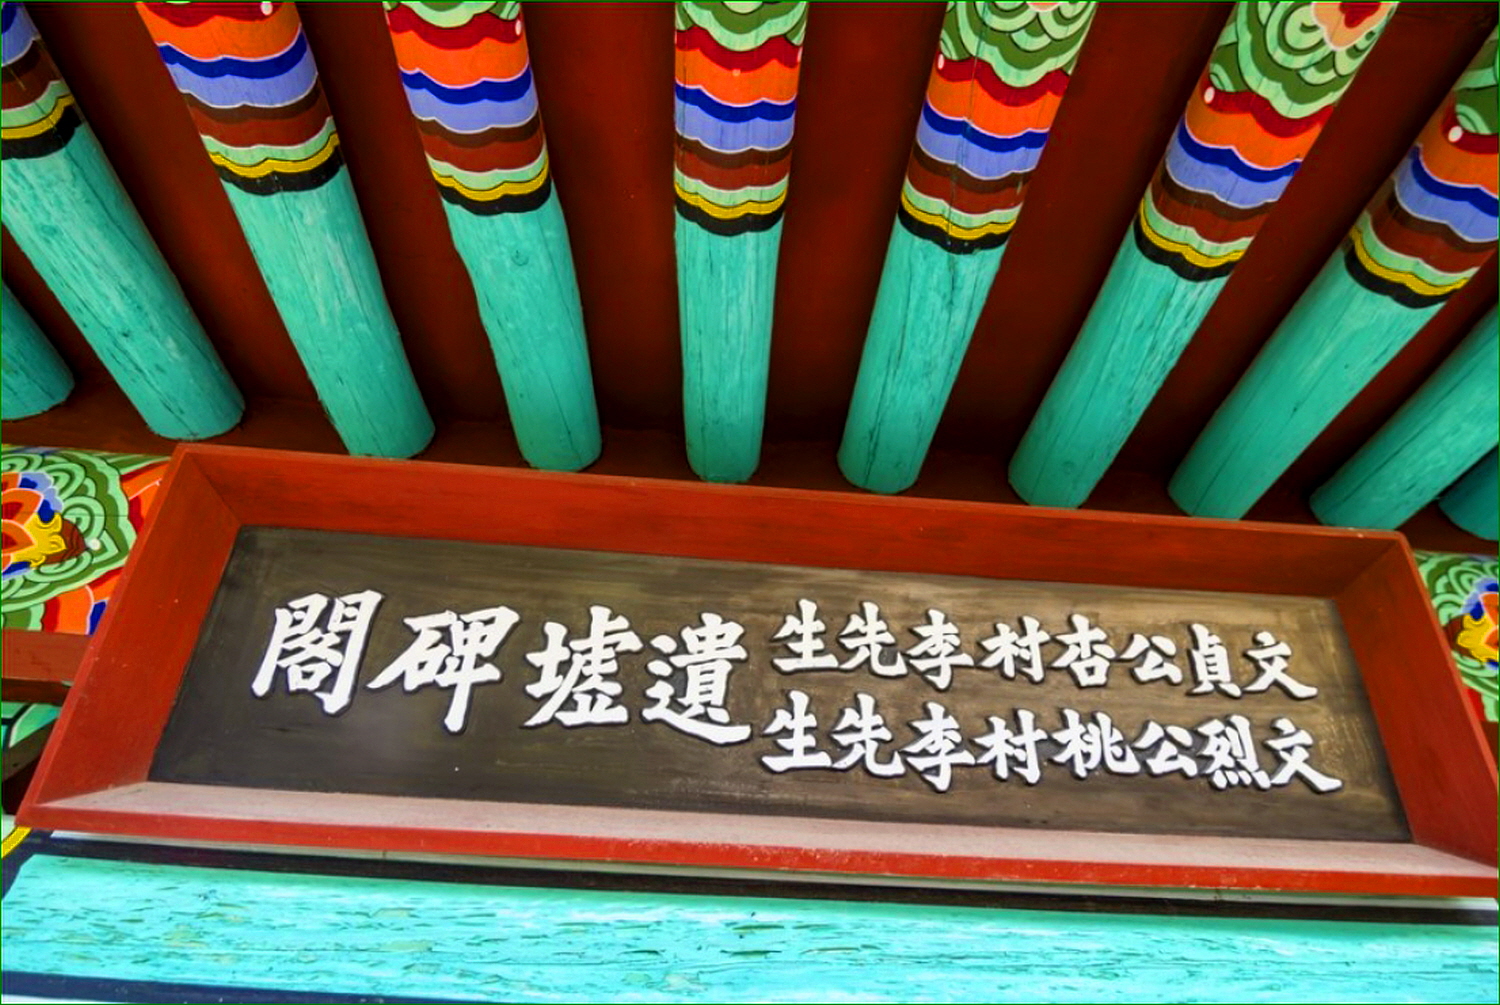 文貞公杏村李先生
文烈公桃村李先生
遺墟碑閣